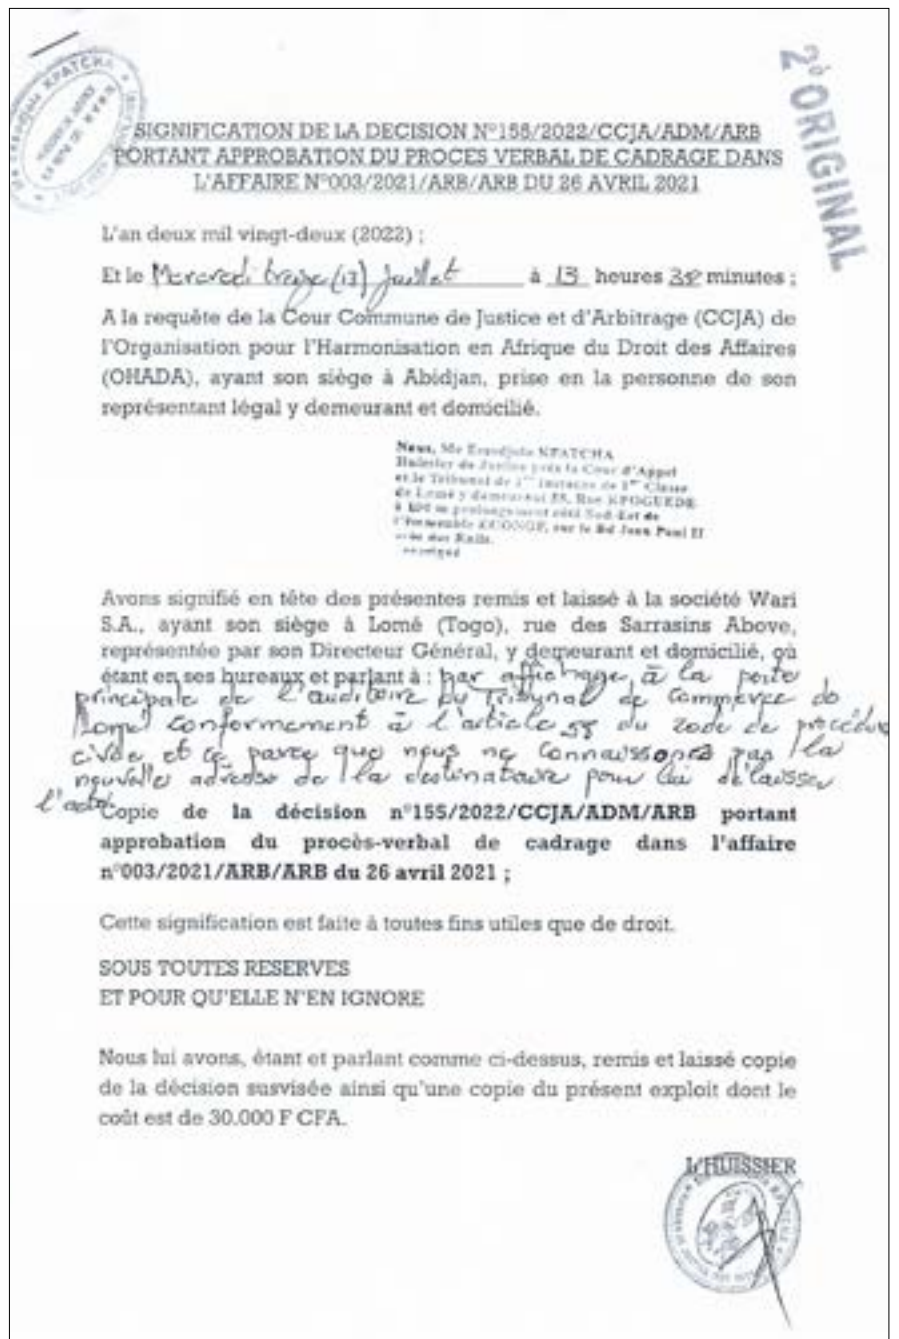 KPATCHA
2è ORIGINAL
SIGNIFICATION DE LA DECISION N°155/2022/CCJA/ADM/ARB
PORTANT APPROBATION DU PROCES VERBAL DE CADRAGE DANS
L'AFFAIRE N°003/2021/ARB/ARB DU 26 AVRIL 2021
L'an deux mil vingt-deux (2022) ;
Et le Mercredi treize (13) Juillet à 13 heures 38 minutes ;
A la requête de la Cour Commune de Justice et d'Arbitrage (CCJA) de
l'Organisation pour l'Harmonisation en Afrique du Droit des Affaires
(OHADA), ayant son siège à Abidjan, prise en la personne de son
représentant légal y demeurant et domicilié.
Nous, Me KPATCHA
Huissier de Justice près la Cour d'Appel
et le Tribunal de 1ère Instance de 1ère Classe
de Lomé y demeurant 55, Rue KPOGUEDE
à 100 m prolongement côté Sud-Est de
l'Immeuble, sur le Bd Jean Paul II
Rails.
soussigné
Avons signifié en tête des présentes remis et laissé à la société Wari
S.A., ayant son siège à Lomé (Togo), rue des Sarrasins Above,
représentée par son Directeur Général, y demeurant et domicilié, où
étant en ses bureaux et parlant à : par affichage à la porte
principale de l'auditoire du Tribunal de Commerce de
Lomé conformement à l'article 58 du code de procédure
civile et ce parce que nous ne connaissons pas la
nouvelle adresse de la destinataire pour lui délaisser
l'acte.
Copie de la décision n°155/2022/CCJA/ADM/ARB portant
approbation du procès-verbal de cadrage dans l'affaire
n°003/2021/ARB/ARB du 26 avril 2021 ;
Cette signification est faite à toutes fins utiles que de droit.
SOUS TOUTES RESERVES
ET POUR QU'ELLE N'EN IGNORE
Nous lui avons, étant et parlant comme ci-dessus, remis et laissé copie
de la décision susvisée ainsi qu'une copie du présent exploit dont le
coût est de 30.000 F CFA.
L'HUISSIER